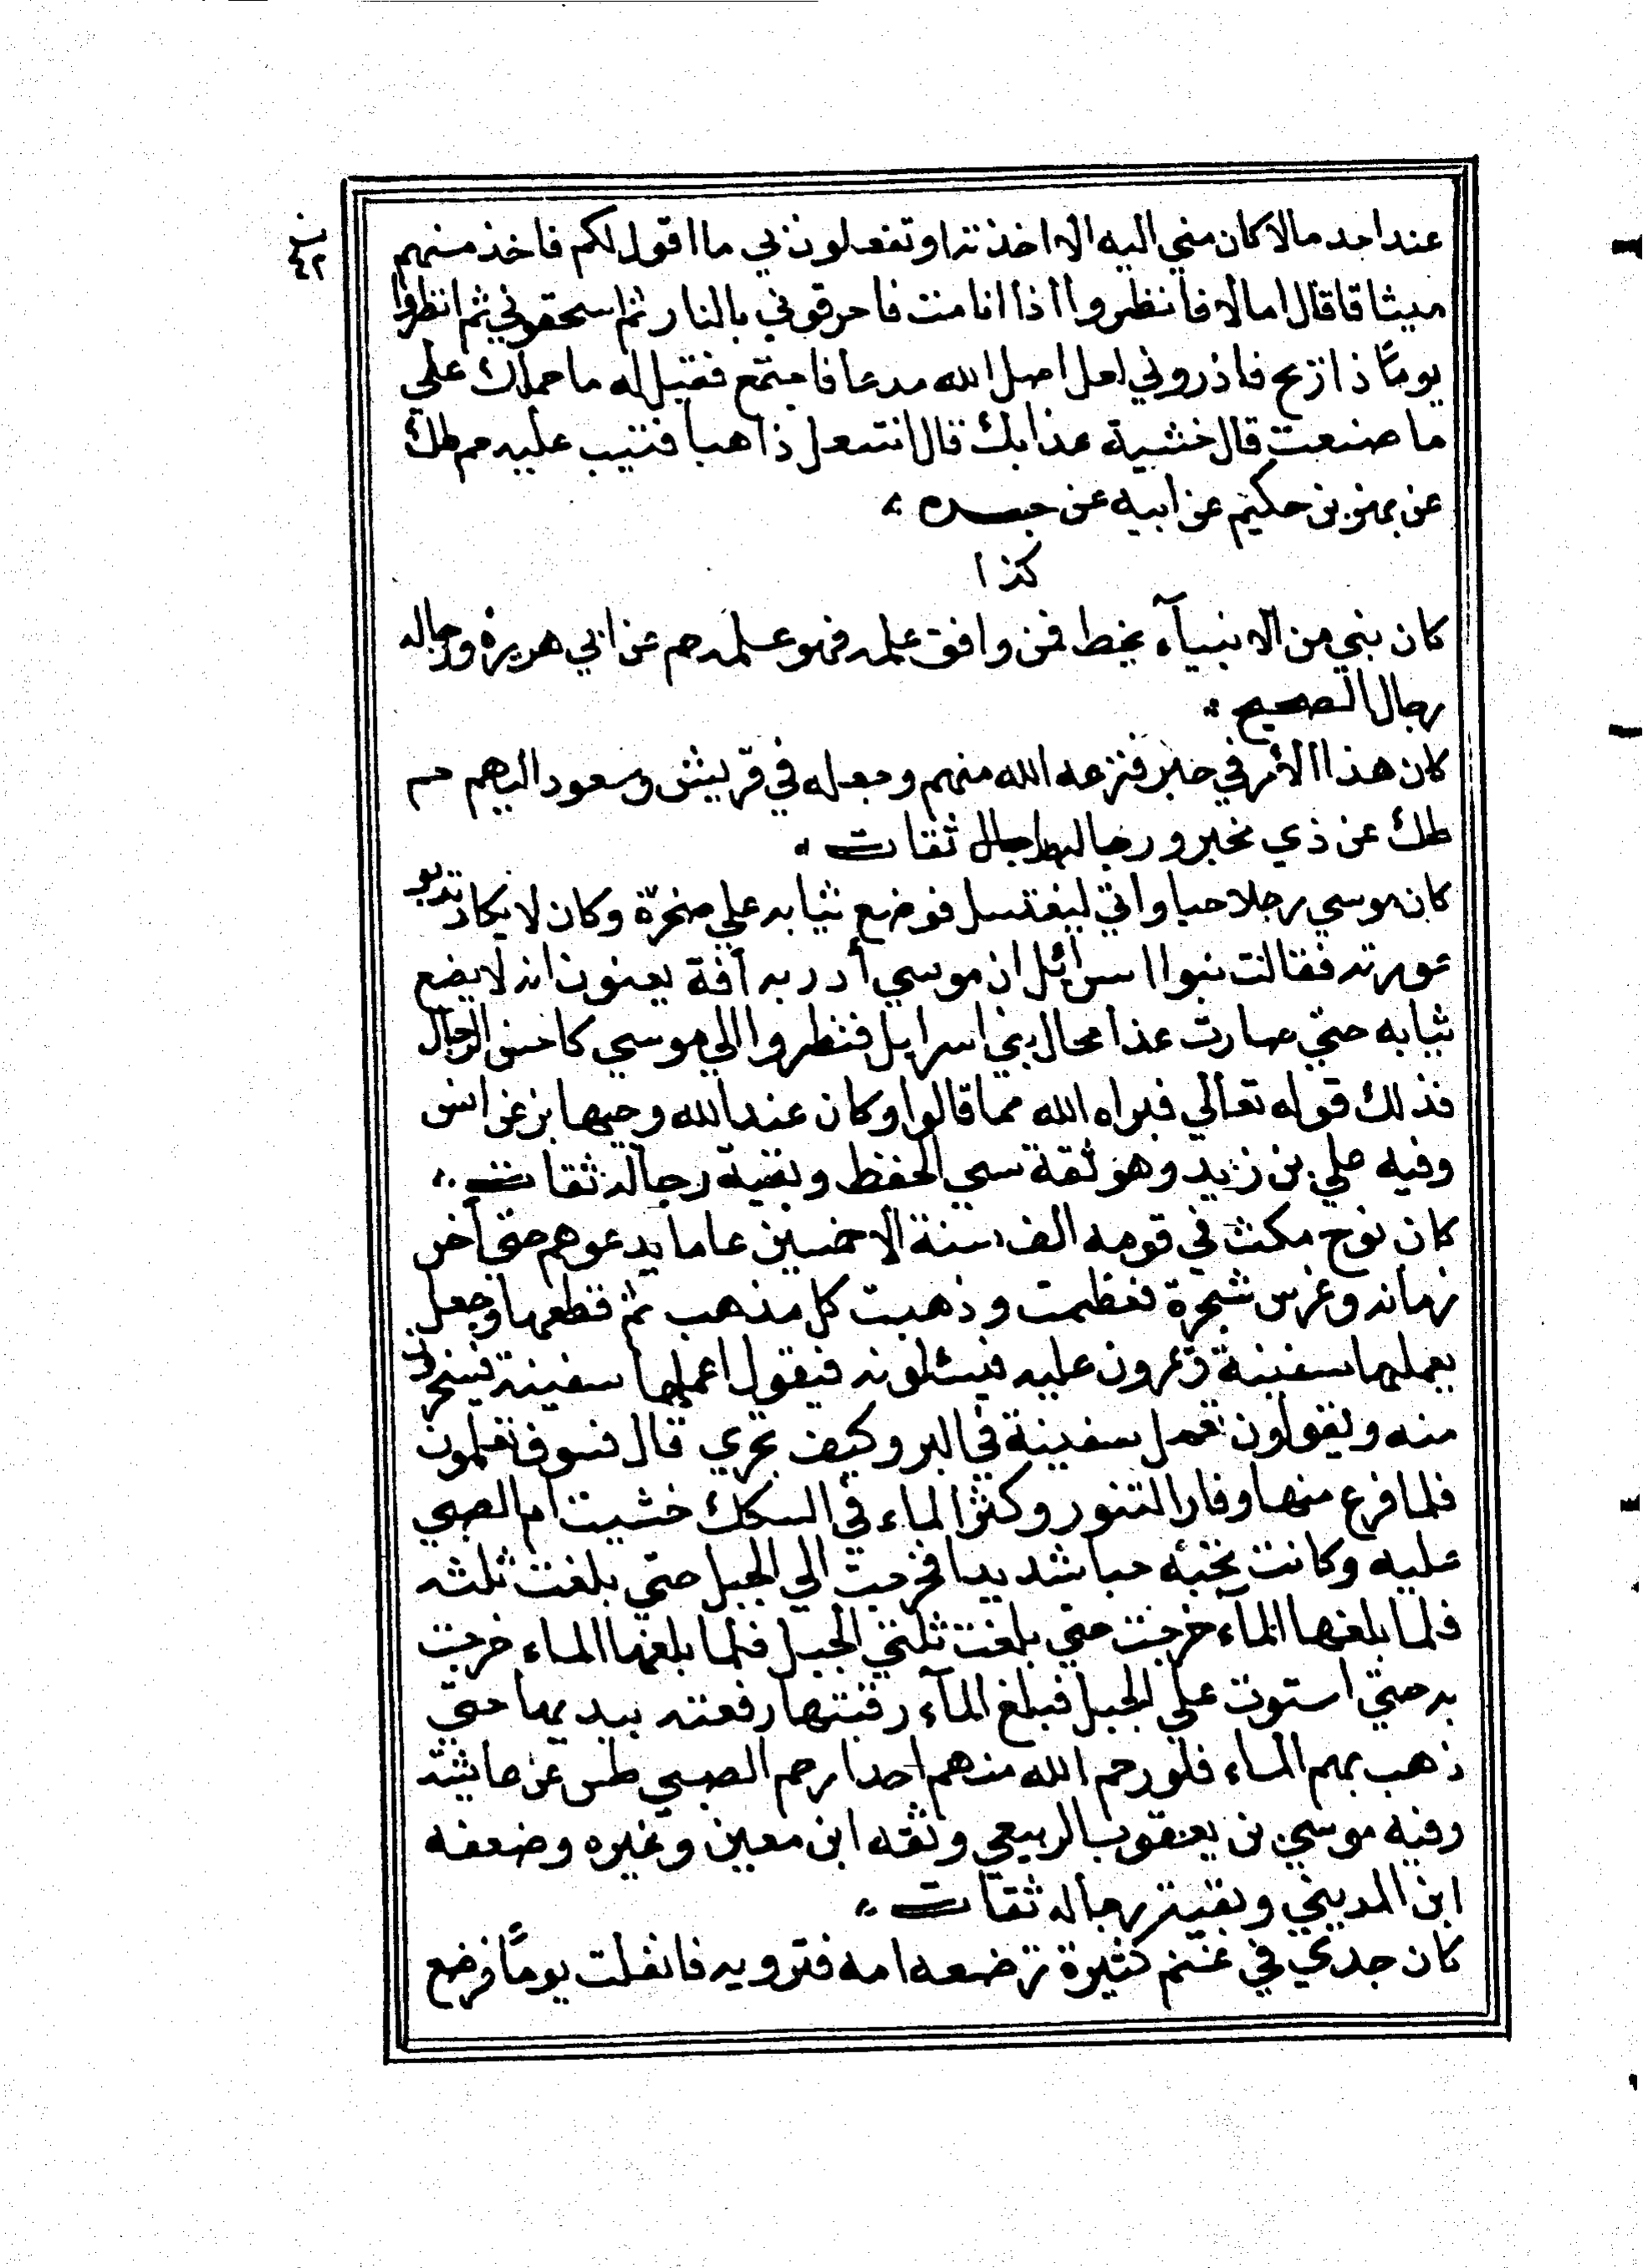 عند احد مالا كان مني اليه الا اخذته او تفعلون بي ما اقول لكم فاخذ منهم
ميثاقا قال اما لا فانظروا اذا انا مت فاحرقوني بالنار ثم اسحقوني ثم انظروا
يومًا ذا ريح فاذروني لعل اضل الله فدعا فاجتمع فقيل له ما حملك علي
ما صنعت قال خشية عذابك قال انتعل ذاهبا فتيب عليه حم طك
عن بهز بن حكيم عن ابيه عن جده
كذا
كان نبي من الانبيآء يخط فمن وافق علمه فهو علمه حم عن ابي هريرة ورجاله
رجال الصحيح
كان هذا الأمر في حمير فنزعه الله منهم وجعله في قريش وسعود اليهم حم
طك عن ذي مخبر ورجالهما رجال ثقات
كان موسي رجلا حييا واتي ليغتسل فوضع ثيابه علي صخرة وكان لا يكاد تبدو
عورته فقالت بنوا اسرائل ان موسي أدر به آفة يعنون انه لا يضع
ثيابه حتي صارت حذا مجال بني اسرايل فنظروا الي موسي كاحسن الرجال
فذلك قوله تعالي فبراه الله مما قالوا وكان عند الله وجيها بز عن انس
وفيه علي بن زيد وهو ثقة سي الحفظ وبقية رجاله ثقات
كان نوح مكث في قومه الف سنة الا خمسين عاما يدعوهم حتي آخر
زمانه وغرس شجرة فعظمت وذهبت كل مذهب ثم قطعها وجعل
يعملها سفينة ويمرون عليه فيسئلونه فيقول اعملها سفينة فيسخرون
منه ويقولون تعمل سفينة في البر وكيف تجري قال فسوف تعلمون
فلما فرغ منها وفار التنور وكثر الماء في السكك خشيت ام الصبي
عليه وكانت تحبه حبا شديدا فخرجت الي الجبل حتي بلغت ثلثه
فلما بلغها المآء خرجت حتي بلغت ثلثي الجبل فلما بلغها الماء خرجت
به حتي استوت علي الجبل فبلغ المآء رقبتها رفعته بيديها حتي
ذهب بهم الماء فلو رحم الله منهم احدا رحم الصبي طس عن عايشة
وفيه موسي بن يعقوب الربيعي وثقه ابن معين وغيره وضعفه
ابن المديني وبقية رجاله ثقات
كان جدي في غنم كثيرة ترضعه امه فترويه فانفلت يومًا فرضع